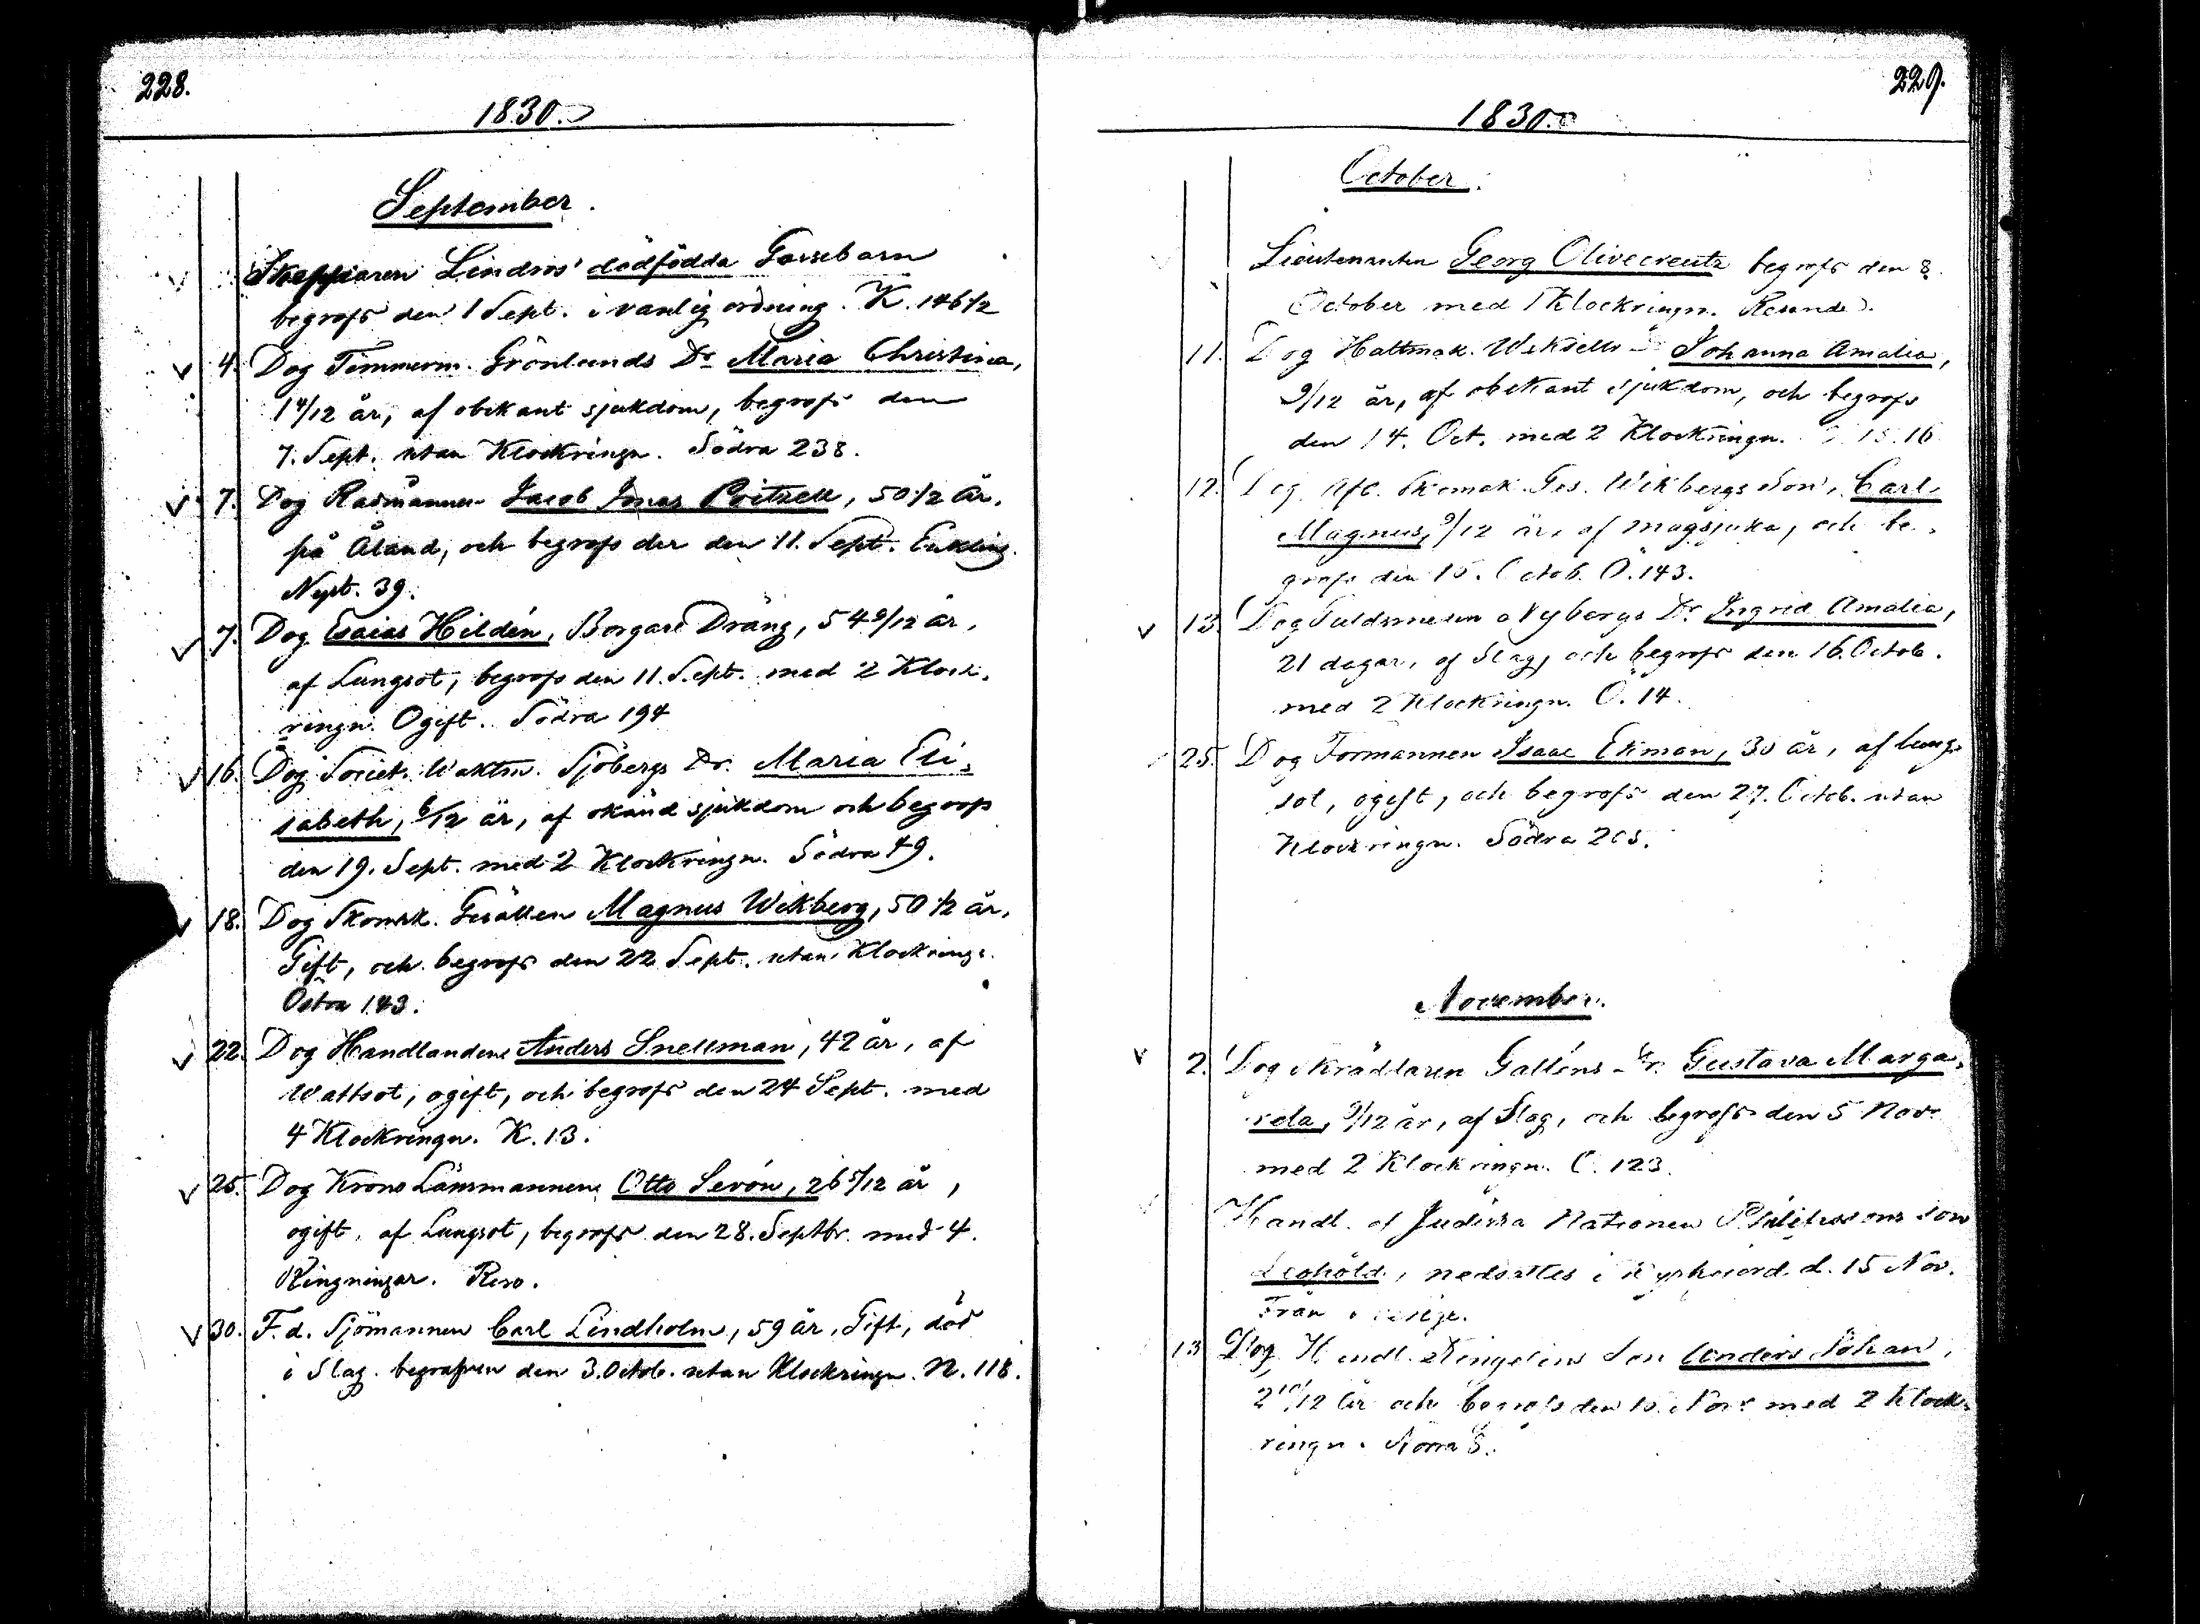 228.
1830.
September.
Skepparen Lindros' dödfödda Gossebarn
begrofs den 1 Sept. i vanlig ordning. K. 146 1/2
4. Dog Timmerm. Grönlunds Dr Maria Christina,
1 4/12 år, af obekant sjukdom, begrofs den
7. Sept. utan Klockringn. Södra 238.
7. Dog Rådmannen Jacob Jonas Pritzell, 50 1/2 år,
på Åland, och begrofs der den 11. Sept. Enkling.
Nyst. 39.
7. Dog Esaias Hildén, Borgare Dräng, 54 9/12 år,
af Lungsot, begrofs den 11. Sept. med 2 Klock-
ringn. Ogift. Södra 194
16. Dog Societ. Waktm. Sjöbergs Dr. Maria Eli-
sabeth, 6/12 år, af okänd sjukdom och begrofs
den 19. Sept. med 2 Klockringn. Södra 49.
18. Dog Skomak. Gesällen Magnus Wikberg, 50 1/2 år,
Gift, och begrofs den 22 Sept. utan Klockring.
Östra 143.
22. Dog Handlanden Anders Snellman, 42 år, af
Wattsot, ogift, och begrofs den 24 Sept. med
4 Klockringn. K. 13.
25. Dog Krono Länsmannen Otto Levón, 26 5/12 år,
ogift, af Lungsot, begrofs den 28. Septbr. med 4.
Ringningar. Reso.
30. F. d. Sjömannen Carl Lindholm, 59 år, Gift, död
i Slag. begrafven den 3. Octob. utan Klockringn. N. 118.
229.
1830.
October.
Lieutenanten Georg Olivecreutz begrofs den 8.
October med 1 Klockringn. Resande.
11. Dog Hattmak. Wiksells Johanna Amalia,
9/12 år, af obekant sjukdom, och begrofs
den 14. Oct. med 2 Klockringn. 15. 16
12. Dog Afl. Skomak. Ges. Wikbergs Son, Carl
Magnus, 9/12 år, af magsjuka, och be-
grofs den 15. Octob. Ö. 143.
13. Dog Guldsmeden Nybergs Dr Ingrid Amalia,
21 dagar, af Slag, och begrofs den 16. Octob.
med 2 Klockringn. Ö. 14.
25. Dog Formannen Isaac Ekman, 30 år, af lung-
sot, ogift, och begrofs den 27. Octob. utan
Klockringn. Södra 203.
November.
2. Dog Skräddaren Galléns Dr. Gustava Marga-
reta, 9/12 år, af Slag, och begrofs den 5 Nov.
med 2 Klockringn. Ö. 123.
Handl. af Judiska Nationen Philipssons son
Leopold, nedsattes i d. 15 Nov.
Från
13 Dog Handl. Ringelins Son Anders Johan,
2 10/12 år och begrofs den Nov. med 2 Klock-
ringn. Norra 8.